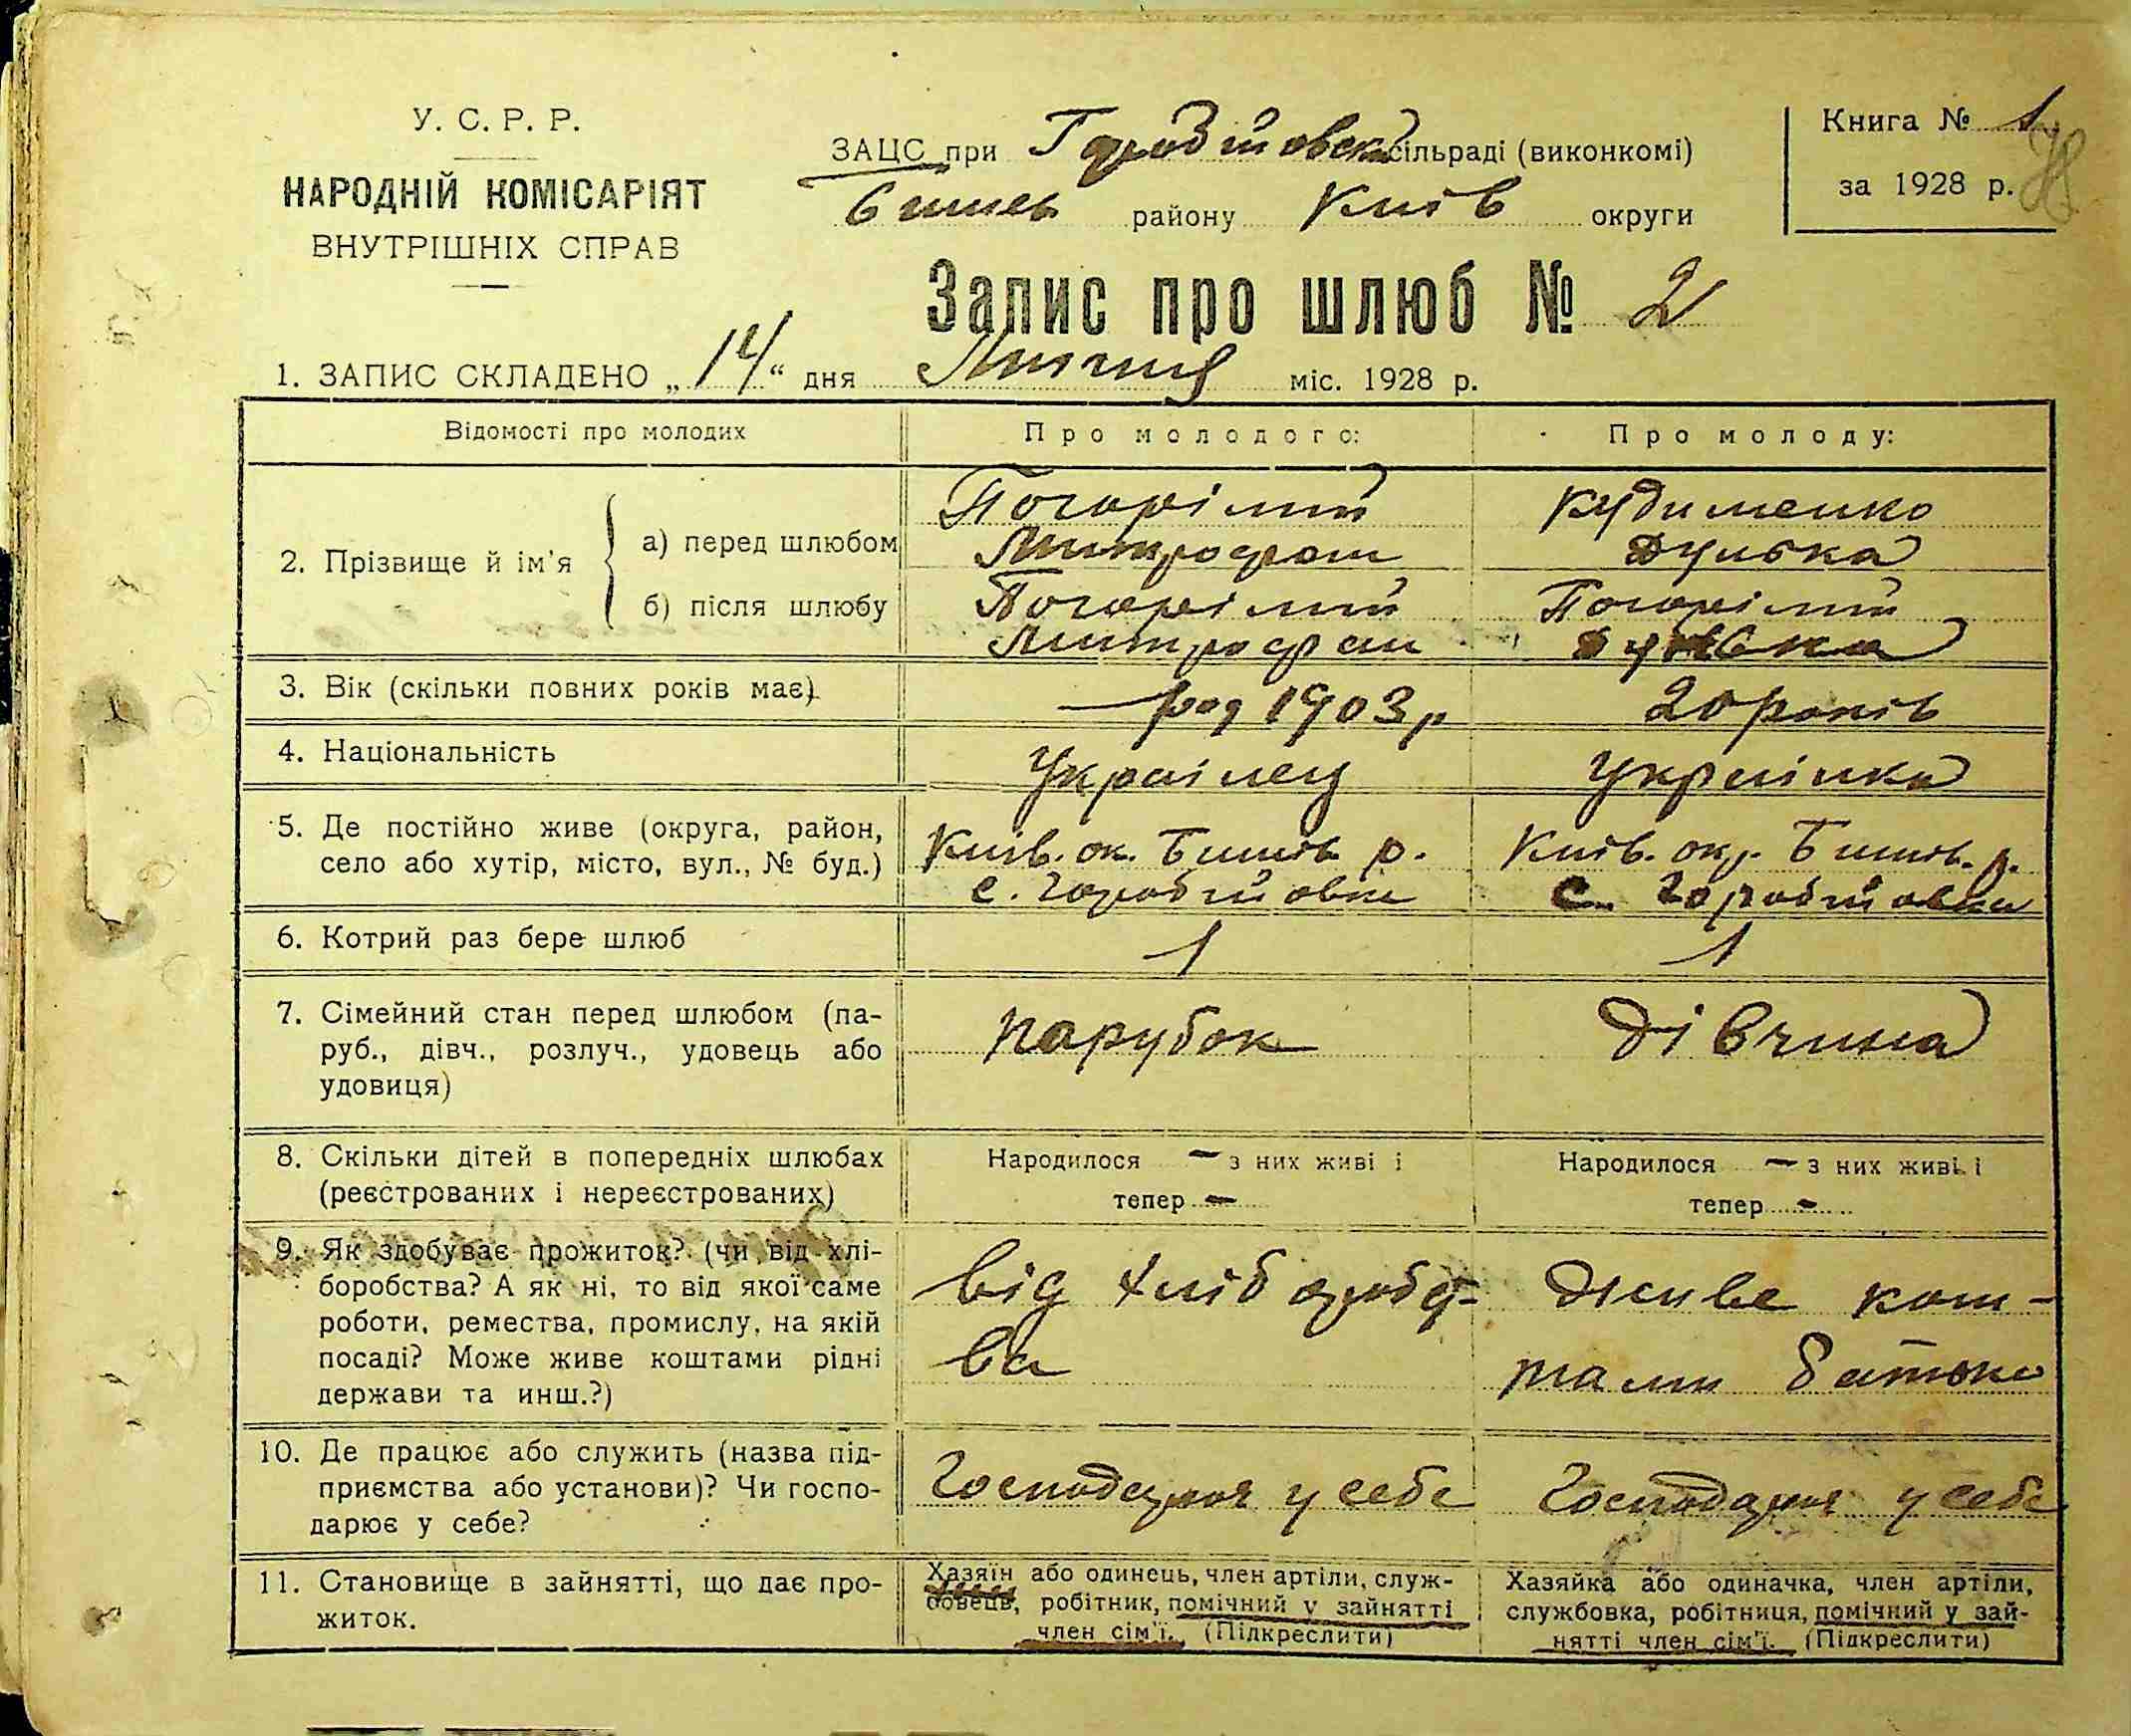 У. С. Р. Р.
НАРОДНІЙ КОМІСАРІЯТ
ВНУТРІШНІХ СПРАВ
ЗАЦС при сільраді (виконкомі)
району Київ округи
Книга № 1
за 1928 р.
Запис про шлюб № 2
1. ЗАПИС СКЛАДЕНО „14“ дня Липня міс. 1928 р.
Відомості про молодих
Про молодого:
Про молоду:
2. Прізвище й ім'я
а) перед шлюбом
Погорілий
Митрофан
Кудименко
Дунька
б) після шлюбу
Погорілий
Митрофан
Погорілий
Дунька
3. Вік (скільки повних років має)
род 1903 р
20 років
4. Національність
Українец
Українка
5. Де постійно живе (округа, район,
село або хутір, місто, вул., № буд.)
Київ. ок. Бишів. р.
с. Городйовка
Київ. окр. Бишів. р.
с. Городйовка
6. Котрий раз бере шлюб
1
1
7. Сімейний стан перед шлюбом (па-
руб., дівч., розлуч., удовець або
удовиця)
парубок
дівчина
8. Скільки дітей в попередніх шлюбах
(реєстрованих і нереєстрованих)
Народилося — з них живі і
тепер —
Народилося — з них живі і
тепер -
9. Як здобуває прожиток? (чи від хлі-
боробства? А як ні, то від якої саме
роботи, ремества, промислу, на якій
посаді? Може живе коштами рідні
держави та инш.?)
від хліборобст-
ва
живе кош-
тами батька
10. Де працює або служить (назва під-
приємства або установи)? Чи госпо-
дарює у себе?
Господарюя у себе
Господарюя у себе
11. Становище в зайнятті, що дає про-
житок.
Хазяїн або одинець, член артіли, служ-
бовець, робітник, помічний у зайнятті
член сім'ї. (Підкреслити)
Хазяйка або одиначка, член артіли,
службовка, робітниця, помічний у зай-
нятті член сім'ї. (Підкреслити)